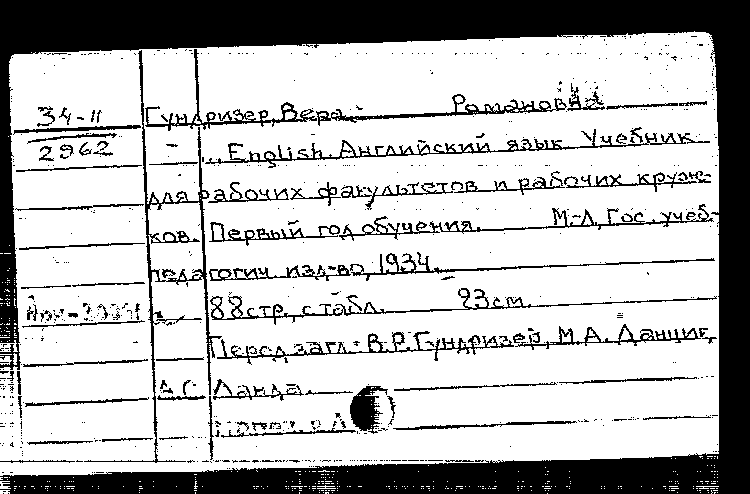 34-II Гундризер, Вера Романовна
2962 - „English. Английский язык Учебник
для рабочих факультетов и рабочих круж-
ков. Первый год обучения. М.-Л, Гос. учеб-
педагогич. изд-во, 1934.
88стр., с табл. 23см.
Перед загл.: В.Р. Гундризер, М.А. Данциг,
А.С. Ланда.